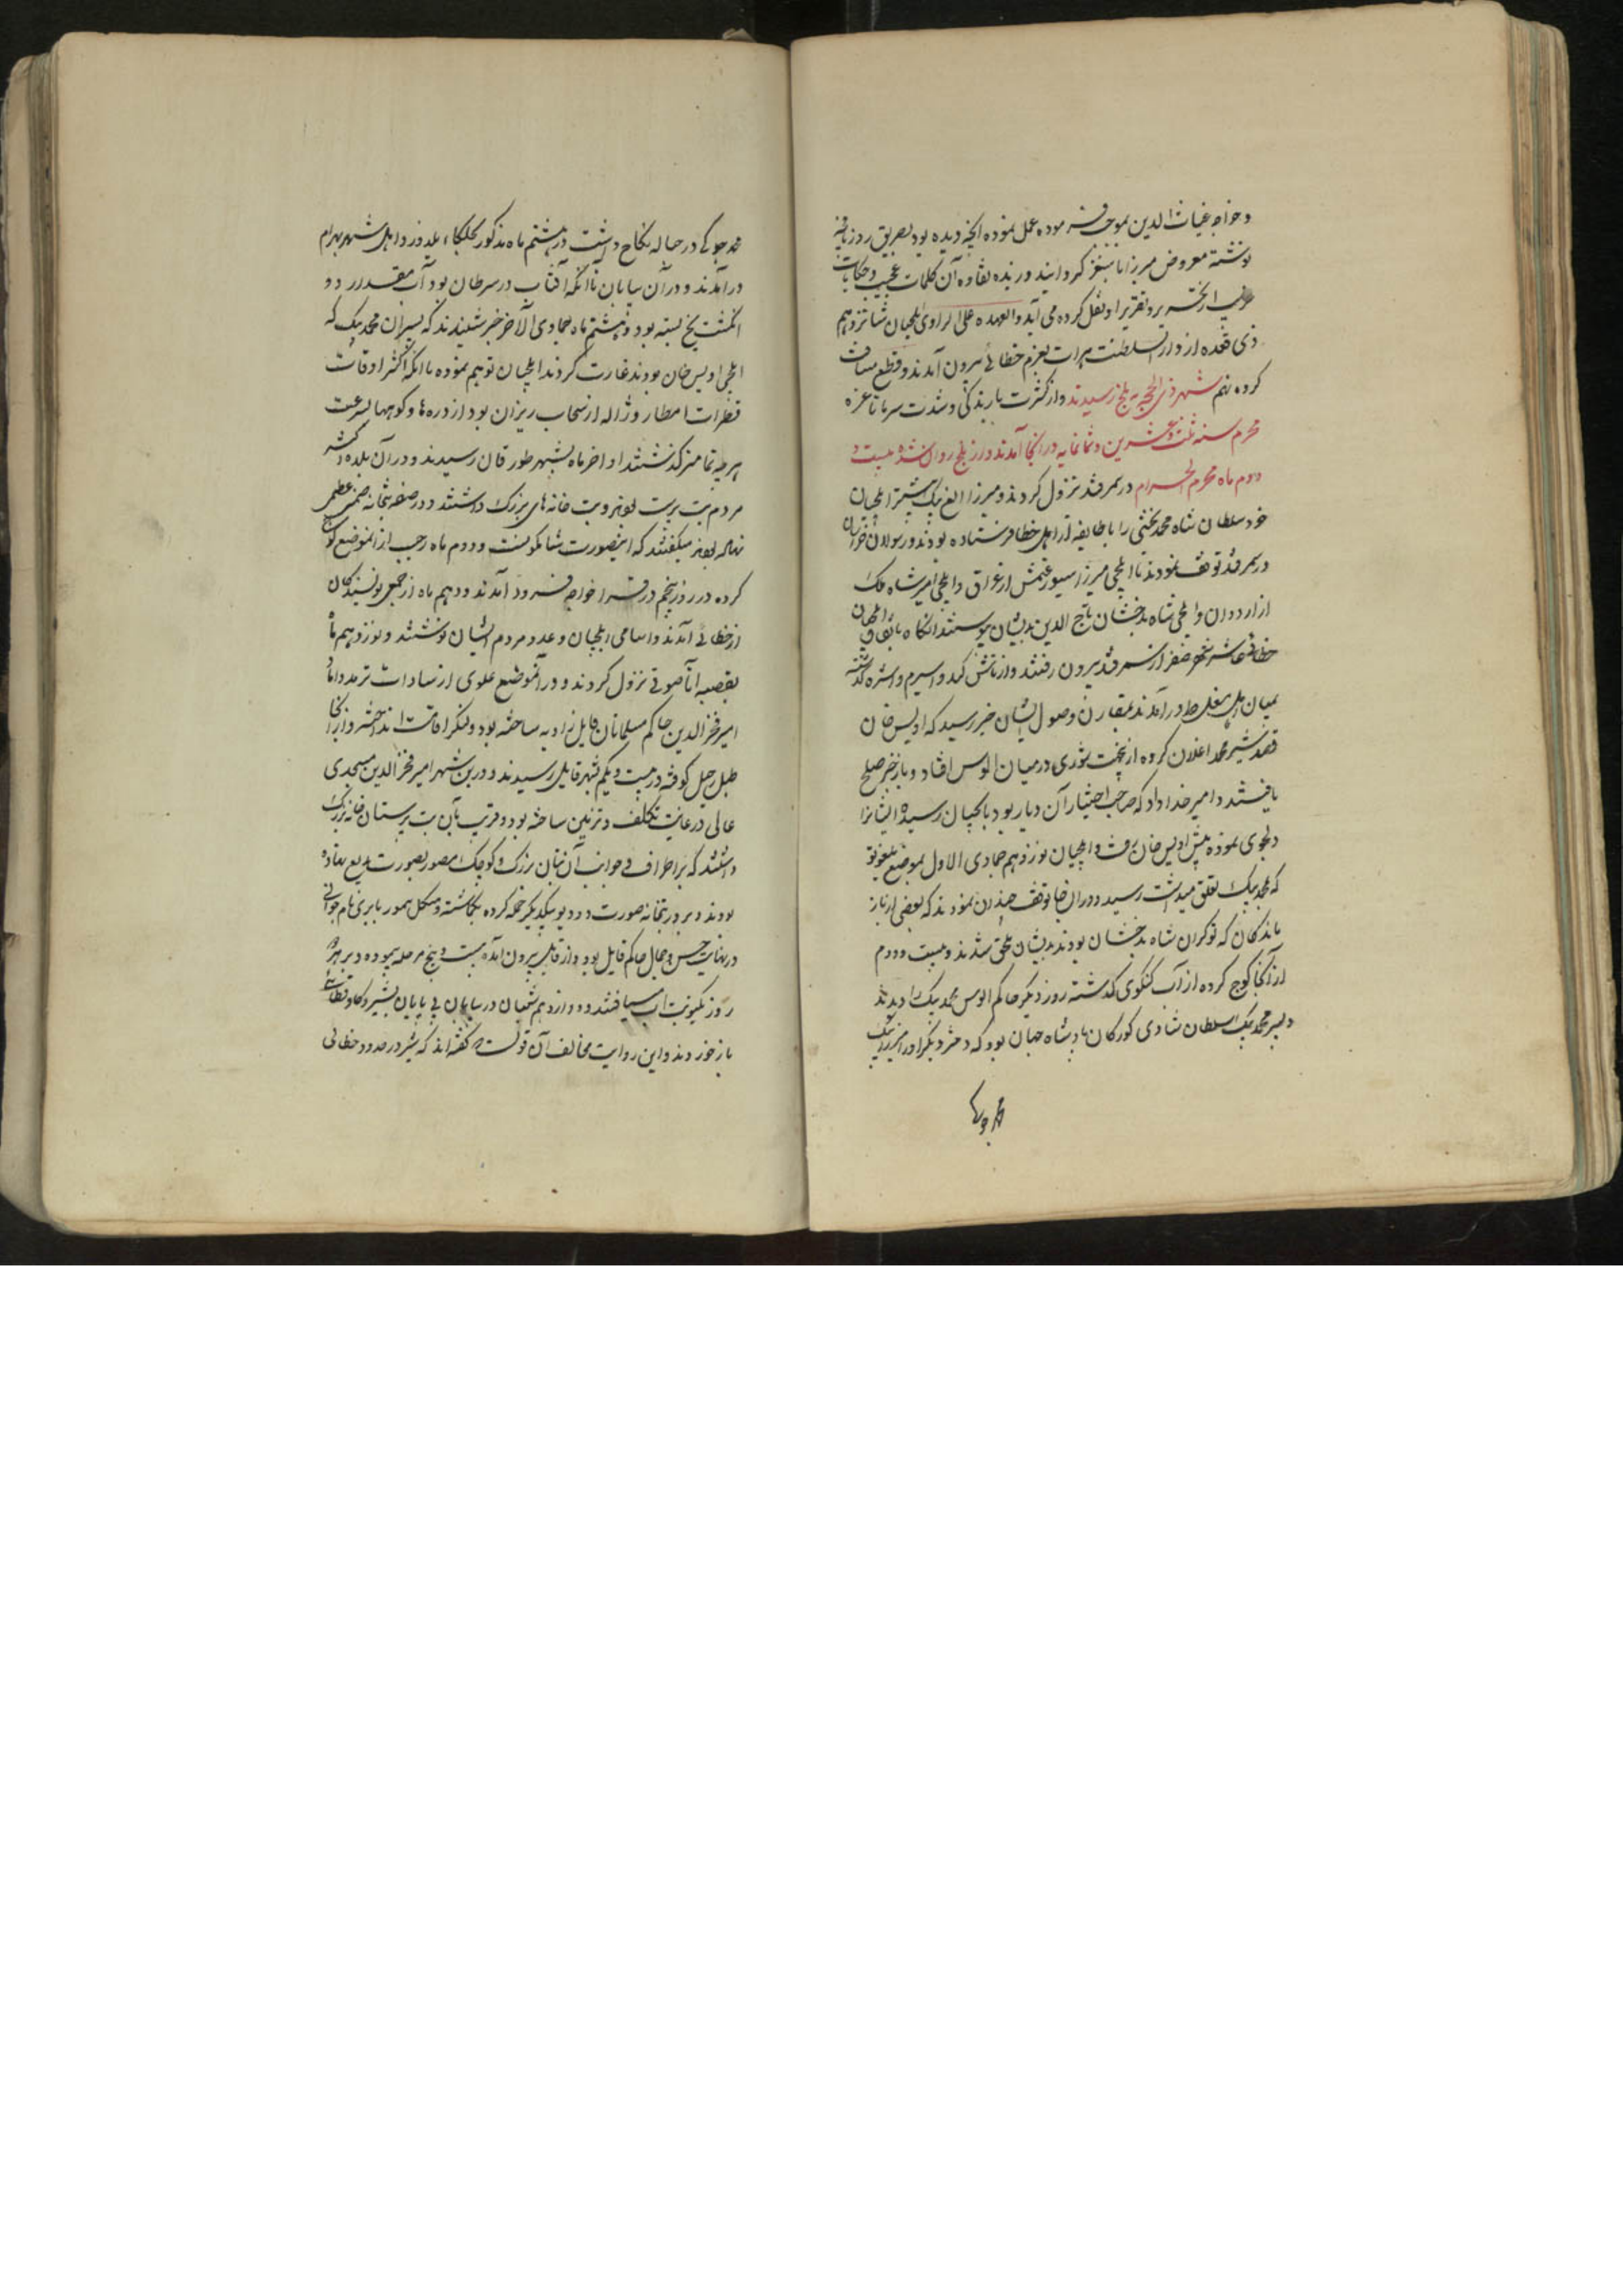 و خواجه غیاث الدین بموجب فرموده عمل نموده آنچه دیده بود بطریق روزنامچه
نوشته معروض میرزا بایسنغر گردانید و زبده نقاوه آن کلمات عجیب و حکایات
غریب از تحریر و تقریر او نقل کرده می آید والعهده علی الراوی ایلچیان شانزدهم
ذی قعده از دار السلطنت هرات بعزم خطائی بیرون آمدند و قطع مسافت
کرده نهم شهر ذی الحجه به بلخ رسیدند و از کثرت بارندگی و شدت سرما تا غره
محرم سنه ثلث و عشرین و ثمانمایه در آنجا آمدند و از بلخ روان شده بیست و
دوم ماه محرم الحرام در سمرقند نزول کردند و میرزا الغ بیک پیشتر ایلچیان
خود سلطان شاه محمد بخشی را با طایفه از اهل خطا فرستاده بودند و رسولان خراسان
در سمرقند توقف نمودند تا ایلچی میرزا سیورغتمش از عراق و ایلچی امیر شاه ملک
از اردوان و ایلچی شاه بدخشان تاج الدین بدیشان پیوستند آنگاه باتفاق ایلچیان
خطائی عاشر شهر صفر از سمرقند بیرون رفتند و از تاشکند و سیرم و اشپره گذشته
بمیان ایل مغل در آمدند مقارن وصول ایشان خبر رسید که اویس خان
قصد شیر محمد اغلان کرده از بجهت شوری در میان الوس افتاد و باز خبر صلح
یافتند و امیر خداداد که صاحب اختیار آن دیار بود بایلچیان رسیده ایشانرا
دلجوی نموده پیش اویس خان رفت و ایلچیان نوزدهم جمادی الاول بموضع بیلغوتو
که محمد بیک تعلق میداشت رسید و در ان جا توقف چندان نمودند که بعضی از باز
ماندگان که نوکران شاه بدخشان بودند بدیشان ملحق شدند و بیست و دوم
از آنجا کوچ کرده از آب کنکوی گذشته روز دیگر حاکم الوس محمد بیک را دیدند
و پسر محمد بیک سلطان شادی کورکان داماد شاه جهان بود که دختر دیگر او را میرزا
محمد جوکی
محمد جوکی در حباله نکاح داشت و در هشتم ماه مذکور بجلکاء یلدوز و ایل شهر بهرام
در آمدند و در آن بیابان با آنکه آفتاب در سرطان بود آب مقدار دو
انگشت یخ بسته بود و هشتم ماه جمادی الآخر خبر شنیدند که پسران محمد بیک که
ایلچی اویس خان بودند غارت کردند ایلچیان توهم نموده با آنکه اکثر اوقات
قطرات امطار و ژاله از سحاب ریزان بود از دره ها و کوهها بسرعت
هر چه تمامتر گذشتند اواخر ماه بشهر طورقان رسیدند و در آن بلده اکثر
مردم بت پرست بودند و بت خانه های بزرگ داشتند و در صفه بتخانه صنمی عظیم
نهاده بودند میگفتند که اینصورت شاکمونیست و دوم ماه رجب از انموضع کوچ
کرده در روز پنجم در قرا خواجه فرود آمدند و دهم ماه از جمعی نویسندگان
از خطائی آمدند و اسامی ایلچیان و عدد مردم ایشان نوشتند و نوزدهم ماه
بقصبه اتا صوفی نزول کردند و در آنموضع علوی از سادات ترمد داماد
امیر فخر الدین حاکم مسلمانان قایل زاویه ساخته بود و لنگر اقامت انداخته و از آنجا
طبل رحیل کوفته در بیست و یکم بشهر قایل رسیدند و درین شهر امیر فخر الدین مسجدی
عالی در غایت تکلف و تزیین ساخته بود و قریب بآن بت پرستان خانه بزرگ
داشتند که بر اطراف و جوانب آن بتان بزرگ و کوچک مصور بصورت بدیع نهاده
بودند و بر در بتخانه صورت دو دیو بیکدیگر حمله کرده نگاشته و منکلی تیمور بایری نام جوانی
در نهایت حسن و جمال حاکم قایل بود و از قایل بیرون آمده بیست و پنج مرحله پیموده و بر هر دو
روز یکنوبت آب مییافتند و دوازدهم شعبان در بیابان بی پایان بشیر و گاو قطاس
باز خوردند و این روایت مخالف آن قولست که گفته اند که شیر در حدود خطائی